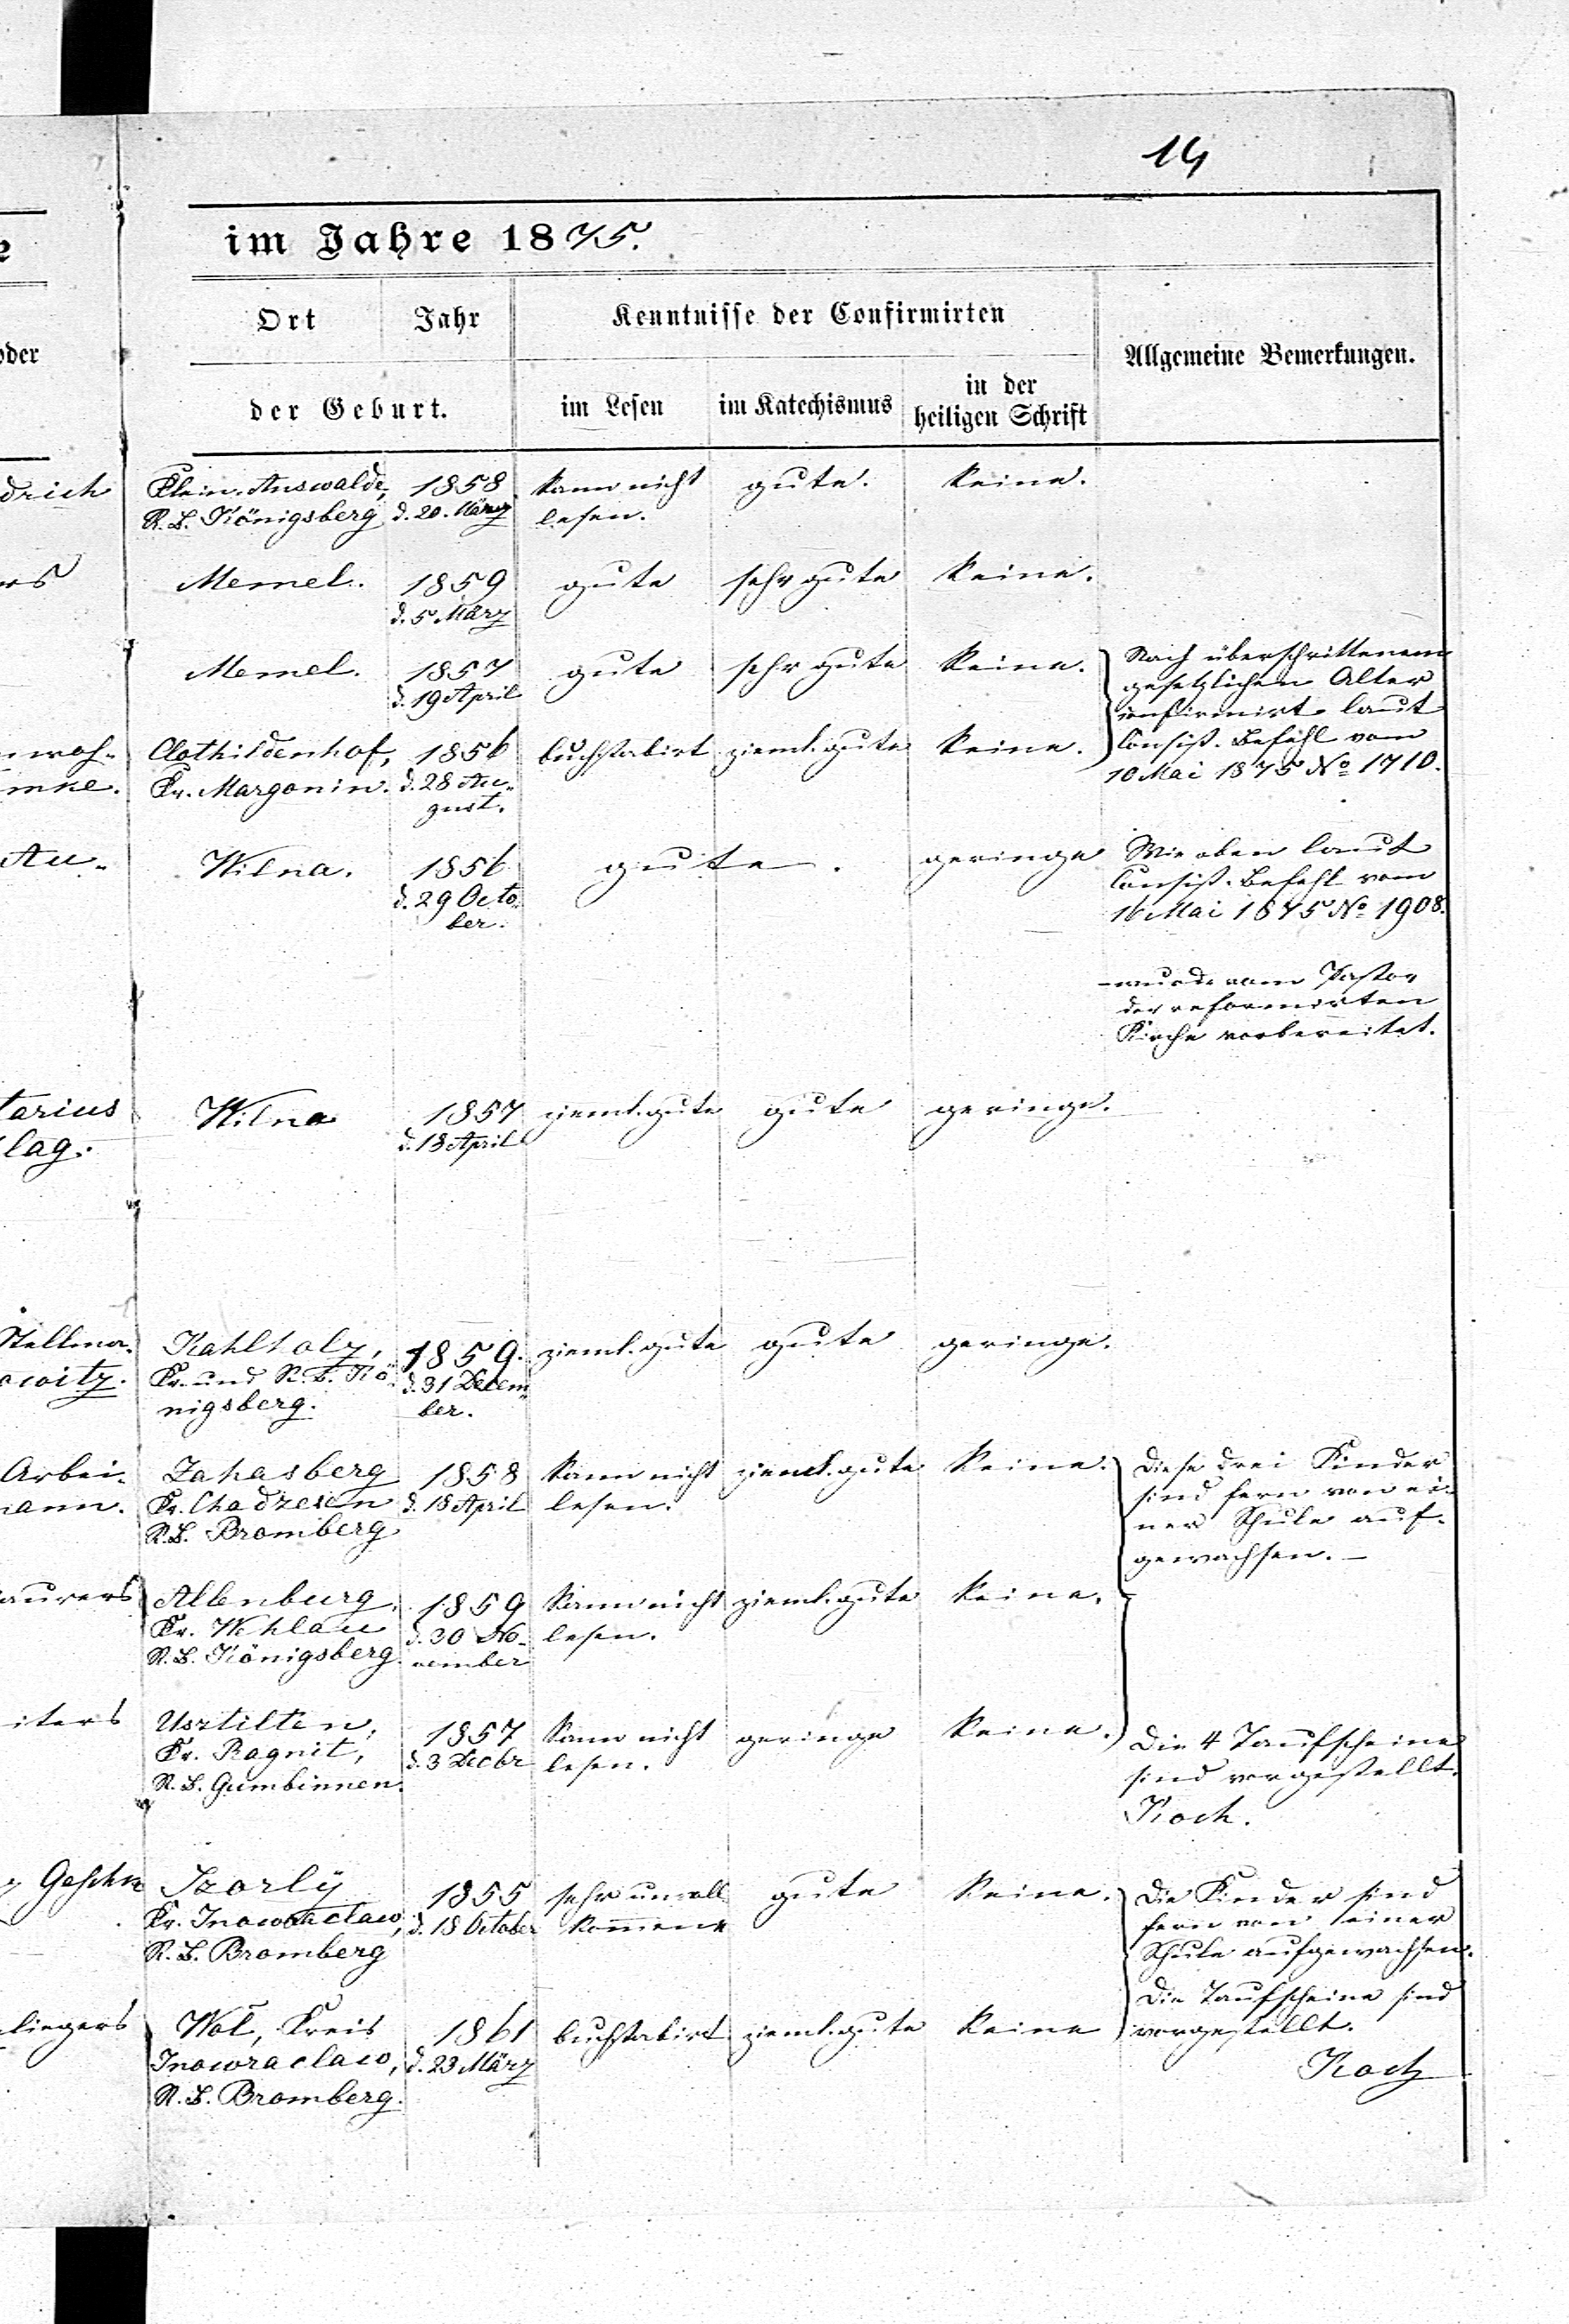 14
im Jahre 1875.
Ort Jahr Kenntnisse der Confirmirten Allgemeine Bemerkungen.
oder
der Geburt. im Lesen im Katechismus in der heiligen Schrift
drich Klein-Auswalde, 1858 kann nicht gute. keine.
R. B. Königsberg d. 20. März lesen.
rs Memel. 1859 gute sehr gute keine.
d. 5 März
Memel. 1857 gute sehr gute keine. Nach überschrittenem
d. 19 April gesetzlichen Alter
confirmirt laut
woh- Clothildenhof, 1856 buchstabirt zieml. gute keine. Consist. Befehl vom
mke. Kr. Margonin. d. 28 Au- 10 Mai 1875 No 1710.
gust.
Au- Wilna. 1856 gute. geringe Wie oben laut
d. 29 Octo- Consist. Befehl vom
ber. 16 Mai 1875 No 1908.
wurde vom Pastor
der reformirten
Kirche vorbereitet.
tarius Wilna 1857 zieml. gute gute geringe.
lag. d. 13 April
Stellma- Kahlholz, 1859. zieml. gute gute geringe.
owitz. Kr. und R. B. Kö- d. 31 Decem-
nigsberg. ber.
Arbei- Zahasberg 1858 kann nicht zieml. gute keine. Diese drei Kinder
mann. Kr. Chadzesen d. 18 April lesen. sind fern von ei-
R. B. Bromberg ner Schule auf-
gewachsen. -
aurers Allenburg, 1859 kann nicht zieml. gute keine.
Kr. Wehlau d. 30 No- lesen.
R. B. Königsberg. vember
iters Usztilten, 1857 kann nicht geringe keine. Die 4 Taufscheine
Kr. Ragnit, d. 3 Decbr lesen. sind vorgestellt.
R. B. Gumbinnen. Koch.
Izorly 1855 sehr unvoll- gute keine. Die Kinder sind
Kr. Inowraclaw, d. 18 October kommene fern von einer
R. B. Bromberg Schule aufgewachsen.
Die Taufscheine sind
liegers Wol, Kreis 1861 buchstabirt zieml. gute keine vorgestellt.
Inowraclaw, d. 23 März Koch
R. B. Bromberg.